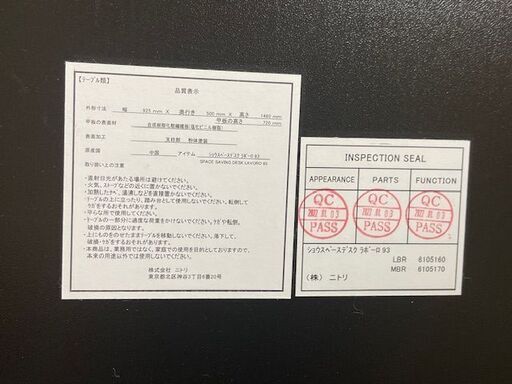 【テーブル類】
品質表示
外形寸法 幅 925 mm X 奥行き 500 mm X 高さ 1480 mm
甲板の高さ 720 mm
甲板の表面材 合成樹脂化粧繊維板(塩化ビニル樹脂)
表面加工 支柱部 粉体塗装
原産国 中国 アイテム ショウスペースデスク ラボーロ93
取り扱い上の注意 SPACE SAVING DESK LAVORO 93
・直射日光があたる場所は避けてください。
・火気、ストーブなどの近くに置かないでください。
・加熱したナベ、湯沸しなどを直接置かないでください。
・テーブルの上に立ったり、踏み台として使用しないでください。転倒して
ケガをするおそれがあります。
・平らな所で使用してください。
・テーブルの一部分に過度な荷重をかけないでください。ケガや転倒、
破損の原因となります。
・上にものをのせたままテーブルを移動しないでください。落下して、
破損・ケガをするおそれがあります。
・本商品は、業務用ではなく、家庭での使用を目的としておりますので、
本来の用途以外では使用しないでください。
株式会社 ニトリ
東京都北区神谷3丁目6番20号
INSPECTION SEAL
APPEARANCE PARTS FUNCTION
QC QC QC
2022.01.03 2022.01.03 2022.01.03
PASS PASS PASS
ショウスペースデスク ラボーロ93
LBR 6105160
MBR 6105170
(株) ニトリ